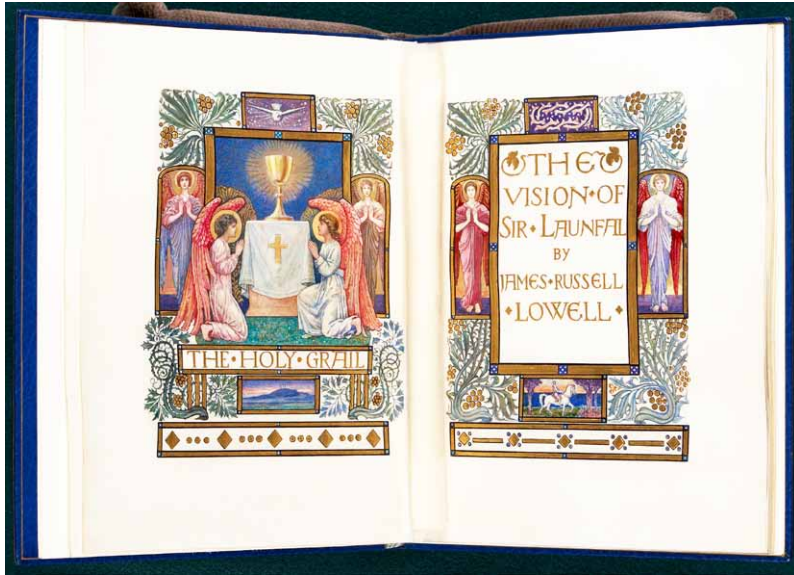 THE·HOLY·GRAIL
THE
VISION·OF
SIR·LAUNFAL
BY
JAMES·RUSSELL
·LOWELL·